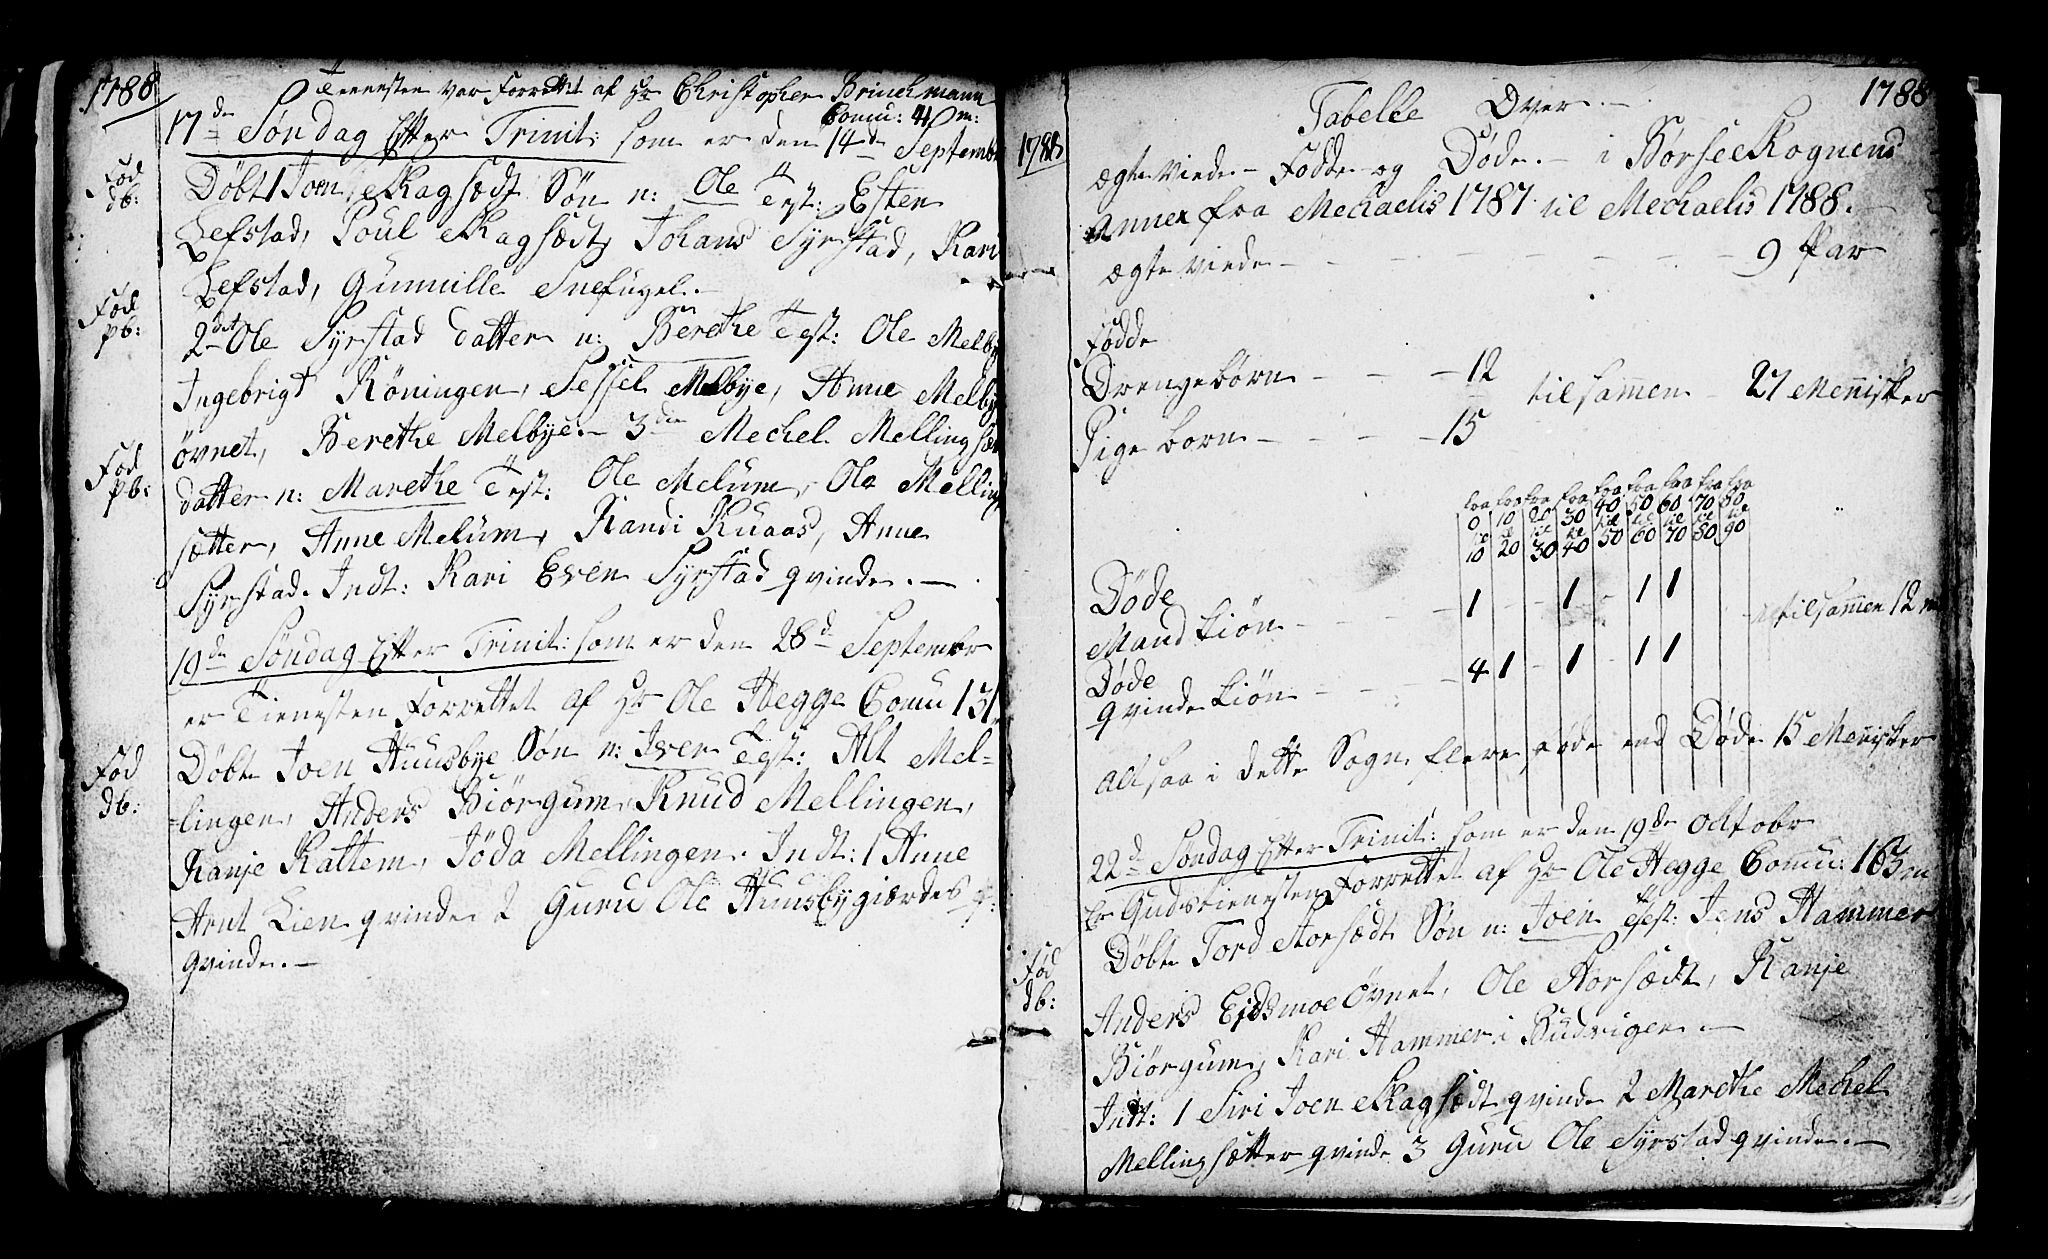 1788
Tienesten var Forrettet af Hr Christopher Brinchmann
Comu: 41 m:
17de Søndag Efter Trinit: som er den 14de Septembr
Fød
db:
Døbt 1 Joen Skagsædt Søn n: Ole Test: Esten
Lefstad, Poul Skagsædt, Johans Syrstad, Kari
Lefstad, Gunnille Snefugel.
Fød
pb:
2det Ole Syrstad datter n: Berethe Test: Ole Melby
Ingebrigt Røningen, Sessel Melbye, Anne Melby
øvnet, Berethe Melbye. 3die Mechel Melling sæ
Fød
pb:
datter n: Marethe Test: Ole Melum, Ole Melling
sætter, Anne Melum, Randi Kuaas, Anne
Syrstad. Indt: Kari Even Syrstad qvinde.
19de Søndag Efter Trinit: som er den 28d Septembr
er Tienesten Forrettet af Hr Ole Hegge Comu 131
Fød
db:
Døbt Joen Huusbye Søn n: Iver Test: Alt Mel-
-lingen, Anders Biörgum, Knud Mellingen,
Ranje Kattem, Jøda Mellingen. Indt: 1 Anne
Arnt Lien qvinde 2 Guru Ole Huusbygiærdes
qvinde.
1788
1788
Tabelle Over
ægte viede Fødde og Døde i Børsee Sognens
Annex fra Mechaelis 1787 til Mechaelis 1788.
ægte viede 9 Par
Fødde
Drengebørn 12 tilsamen 27 Menisker
Pige born 15
fra fra fra fra fra fra fra fra fra
0 10 20 30 40 50 60 70 80
til til til til til til til til til
10 20 30 40 50 60 70 80 90
Døde
Mand kiøn 1 1 1 1 tilsammen 12
Døde
qvinde kiøn 4 1 1 1 1
altsaa i dette Sogn flere føde end Døde 15 Menisker
22d Søndag Efter Trinit: som er den 19de Octobr
Er Gudstienesten Forrettet af Hr Ole Hegge Comu: 163 m
Fød
db:
Døbt Tord Storsædt Søn n: Joen Test: Jens Hammer
Anders Eidsmoe Övnet, Ole Storsædt, Ranje
Biörgum, Kari Hammer i Budvigen.
Indt: 1 Siri Joen Skagsædt qvinde 2 Marethe Mechel
Melling sætter qvinde 3 Guru Ole Syrstad qvinde.